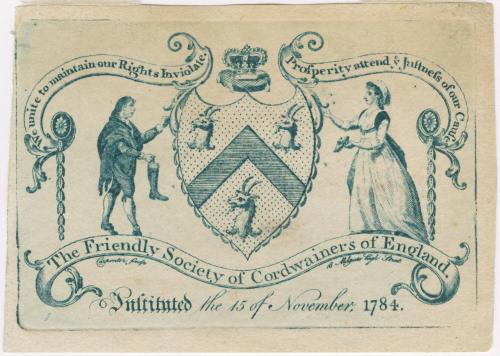 We unite to maintain our Rights Inviolate,
Prosperity attend ye Justness of our Cause.
The Friendly Society of Cordwainers of England.
Instituted the 15 of November, 1784.